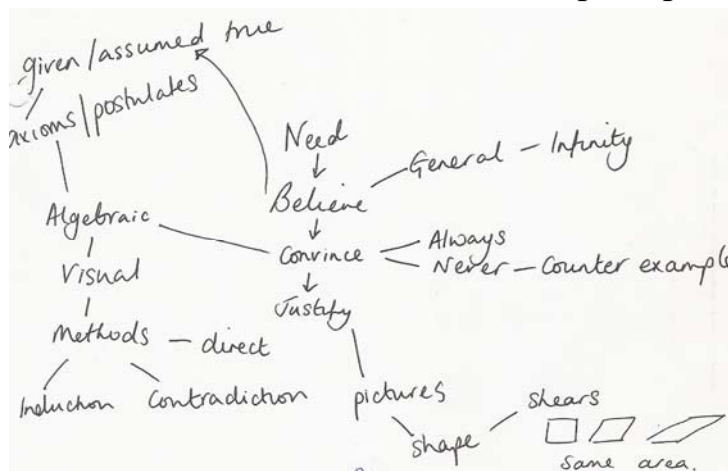 given/assumed true
axioms/postulates
Need
General - Infinity
Believe
Algebraic
Always
Convince
Never - Counter example
Visual
Justify
Methods - direct
Induction
Contradiction
pictures
shears
shape
same area.